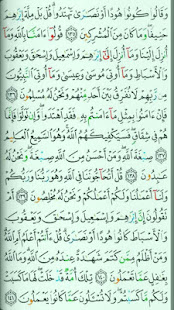 وَقَالُوا۟ كُونُوا۟ هُودًا أَوْ نَصَـٰرَىٰ تَهْتَدُوا۟ ۗ قُلْ بَلْ مِلَّةَ إِبْرَٰهِـۧمَ
حَنِيفًا ۖ وَمَا كَانَ مِنَ ٱلْمُشْرِكِينَ ١٣٥ قُولُوٓا۟ ءَامَنَّا بِٱللَّهِ وَمَآ
أُنزِلَ إِلَيْنَا وَمَآ أُنزِلَ إِلَىٰٓ إِبْرَٰهِـۧمَ وَإِسْمَـٰعِيلَ وَإِسْحَـٰقَ وَيَعْقُوبَ
وَٱلْأَسْبَاطِ وَمَآ أُوتِىَ مُوسَىٰ وَعِيسَىٰ وَمَآ أُوتِىَ ٱلنَّبِيُّونَ
مِن رَّبِّهِمْ لَا نُفَرِّقُ بَيْنَ أَحَدٍ مِّنْهُمْ وَنَحْنُ لَهُۥ مُسْلِمُونَ ١٣٦
فَإِنْ ءَامَنُوا۟ بِمِثْلِ مَآ ءَامَنتُم بِهِۦ فَقَدِ ٱهْتَدَوا۟ ۖ وَّإِن تَوَلَّوْا۟ فَإِنَّمَا
هُمْ فِى شِقَاقٍ ۖ فَسَيَكْفِيكَهُمُ ٱللَّهُ ۚ وَهُوَ ٱلسَّمِيعُ ٱلْعَلِيمُ
١٣٧ صِبْغَةَ ٱللَّهِ ۖ وَمَنْ أَحْسَنُ مِنَ ٱللَّهِ صِبْغَةً ۖ وَنَحْنُ لَهُۥ
عَـٰبِدُونَ ١٣٨ قُلْ أَتُحَآجُّونَنَا فِى ٱللَّهِ وَهُوَ رَبُّنَا وَرَبُّكُمْ
وَلَنَآ أَعْمَـٰلُنَا وَلَكُمْ أَعْمَـٰلُكُمْ وَنَحْنُ لَهُۥ مُخْلِصُونَ ١٣٩ أَمْ
تَقُولُونَ إِنَّ إِبْرَٰهِـۧمَ وَإِسْمَـٰعِيلَ وَإِسْحَـٰقَ وَيَعْقُوبَ
وَٱلْأَسْبَاطَ كَانُوا۟ هُودًا أَوْ نَصَـٰرَىٰ ۗ قُلْ ءَأَنتُمْ أَعْلَمُ أَمِ ٱللَّهُ
وَمَنْ أَظْلَمُ مِمَّن كَتَمَ شَهَـٰدَةً عِندَهُۥ مِنَ ٱللَّهِ ۗ وَمَا ٱللَّهُ
بِغَـٰفِلٍ عَمَّا تَعْمَلُونَ ١٤٠ تِلْكَ أُمَّةٌ قَدْ خَلَتْ ۖ لَهَا مَا كَسَبَتْ
وَلَكُم مَّا كَسَبْتُمْ ۖ وَلَا تُسْـَٔلُونَ عَمَّا كَانُوا۟ يَعْمَلُونَ ١٤١